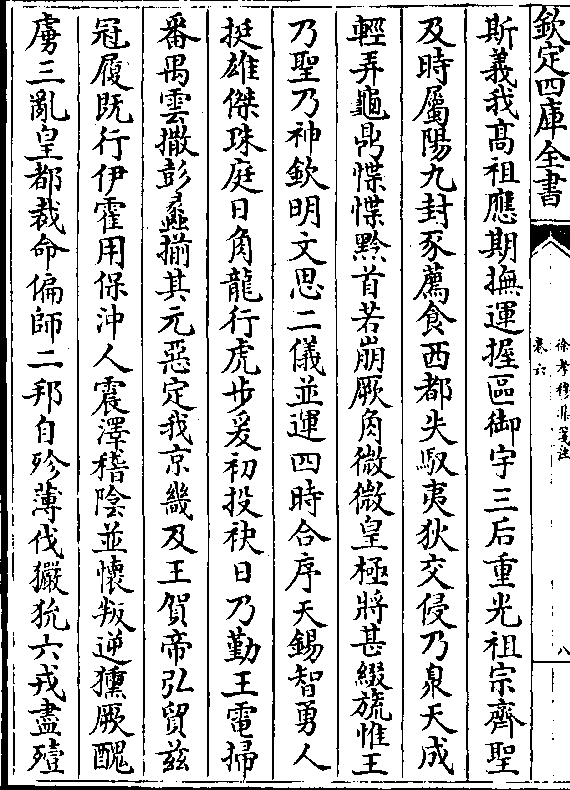 欽定四庫全書
徐孝穆集箋注
卷六
八
斯義我髙祖應期撫運握區御宇三后重光祖宗齊聖
及時屬陽九封豕薦食西都失馭夷狄交侵乃泉天成
輕弄龜鼎惵惵黔首若崩厥角微微皇極將甚綴旒惟王
乃聖乃神欽明文思二儀並運四時合序天錫智勇人
挺雄傑珠庭日角龍行虎步爰初投袂日乃勤王電掃
番禺雲撤彭蠡揃其元惡定我京畿及王賀帝弘貿兹
冠履既行伊霍用保沖人震澤稽陰並懷叛逆獯厥醜
虜三亂皇都裁命偏師二邦自殄薄伐玁狁六戎盡殪